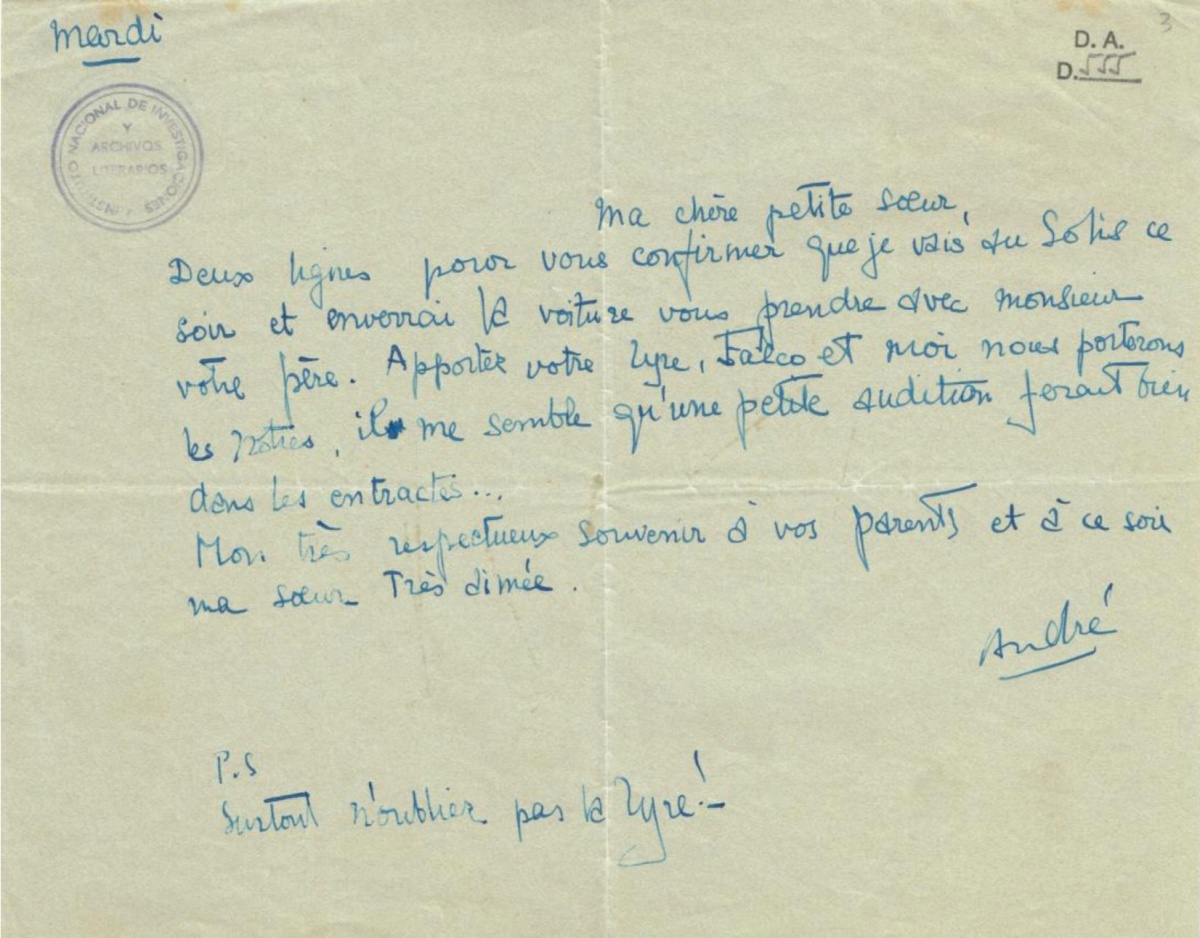 Mardi
3
D. A.
D. 555
INSTITUTO NACIONAL DE INVESTIGACIONES
Y
ARCHIVOS
LITERARIOS
Ma chère petite sœur,
Deux lignes pour vous confirmer que je vais au Solis ce
soir et enverrai la voiture vous prendre avec monsieur
votre père. Apportez votre lyre, Falco et moi nous porterons
les nôtres, il me semble qu'une petite audition ferait bien
dans les entractes...
Mon très respectueux souvenir à vos parents et à ce soir
ma sœur très aimée.
André
P.S
Surtout n'oubliez pas la lyre!-